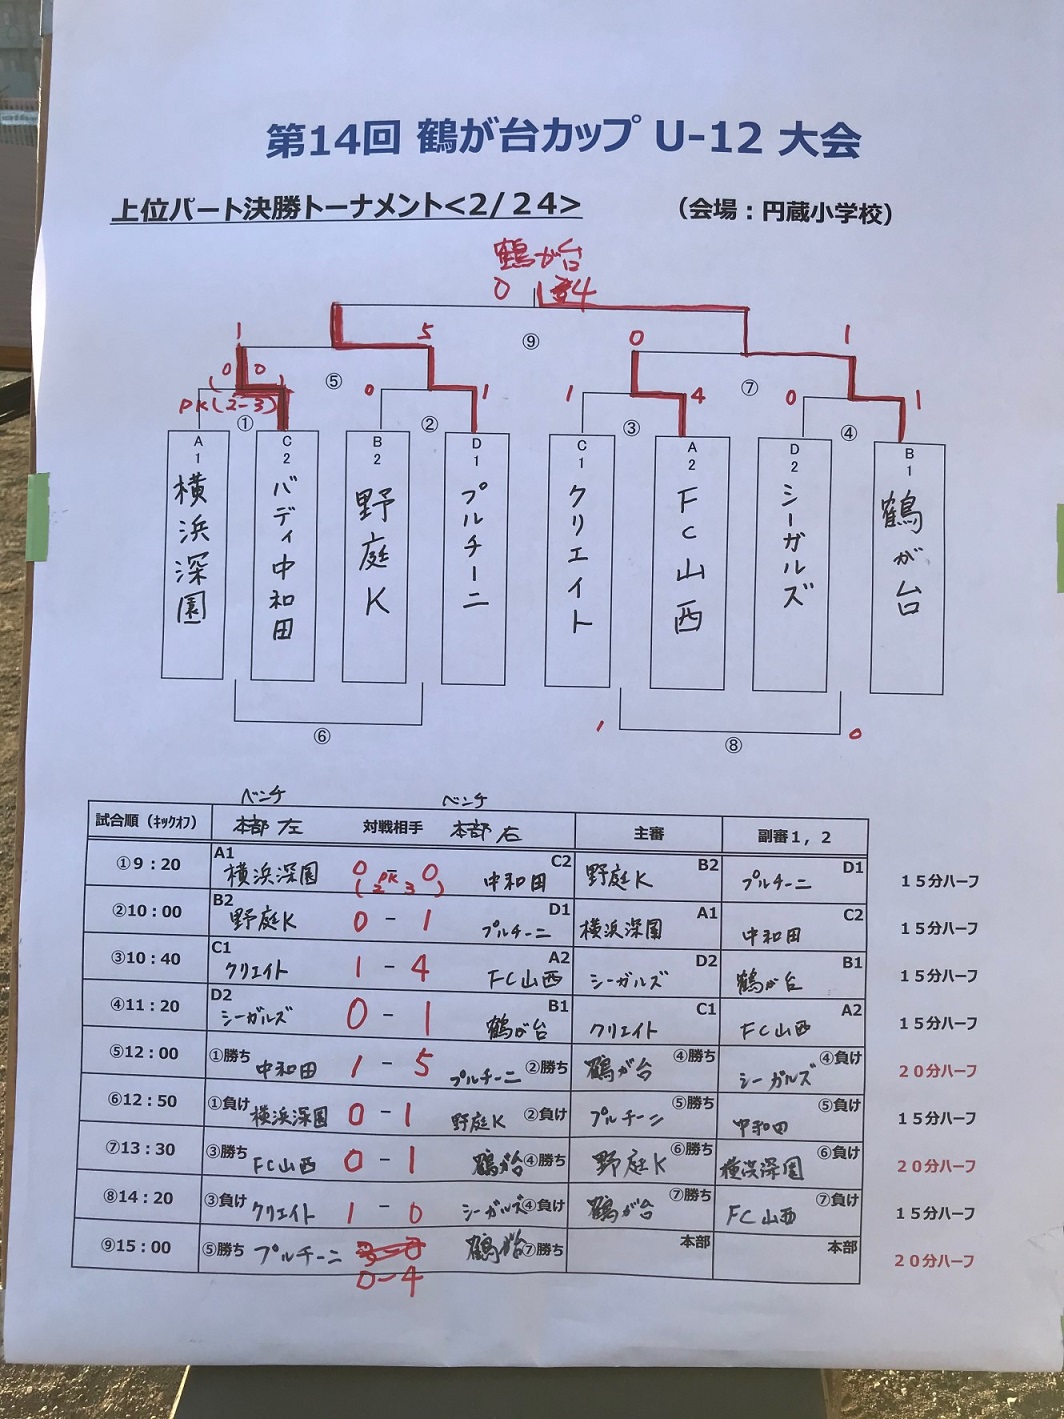 第14回 鶴が台カップ U-12 大会
上位パート決勝トーナメント<2/24>
（会場：円蔵小学校）
鶴が台
0 4
1 5 ⑨ 0 1
(0 0) ⑤ 0 1 1 4 ⑦ 0 1
PK(2-3) ① ② ③ ④
A1 横浜深園
C2 バディ中和田
B2 野庭K
D1 プルチーニ
C1 クリエイト
A2 FC山西
D2 シーガルズ
B1 鶴が台
⑥ 1 ⑧ 0
ベンチ ベンチ
試合順（ｷｯｸｵﾌ） 本部 左 対戦相手 本部 右 主審 副審１，２
①9：20 A1 横浜深園 0 - 0 (2 PK 3) C2 中和田 野庭K B2 プルチーニ D1 １５分ハーフ
②10：00 B2 野庭K 0 - 1 D1 プルチーニ 横浜深園 A1 中和田 C2 １５分ハーフ
③10：40 C1 クリエイト 1 - 4 A2 FC山西 シーガルズ D2 鶴が台 B1 １５分ハーフ
④11：20 D2 シーガルズ 0 - 1 B1 鶴が台 クリエイト C1 FC山西 A2 １５分ハーフ
⑤12：00 ①勝ち 中和田 1 - 5 プルチーニ ②勝ち 鶴が台 ④勝ち シーガルズ ④負け ２０分ハーフ
⑥12：50 ①負け 横浜深園 0 - 1 野庭K ②負け プルチーニ ⑤勝ち 中和田 ⑤負け １５分ハーフ
⑦13：30 ③勝ち FC山西 0 - 1 鶴が台 ④勝ち 野庭K ⑥勝ち 横浜深園 ⑥負け ２０分ハーフ
⑧14：20 ③負け クリエイト 1 - 0 シーガルズ ④負け 鶴が台 ⑦勝ち FC山西 ⑦負け １５分ハーフ
⑨15：00 ⑤勝ち プルチーニ 鶴が台 ⑦勝ち 本部 本部 ２０分ハーフ
0-4